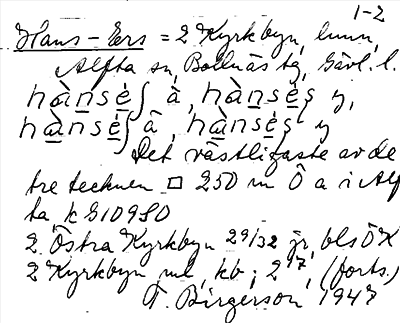 1-2
Hans-Ers = 2 Kyrkbyn, lunn,
Alfta sn, Bollnäs tg, Gävl. l.
hànsèʃ à, hànsès y,
hànsèʃ â, hànsès y
Det västligaste av de
tre tecknen □ 250 m Ö a i Alf
ta k G109SO
2 Östra Kyrkbyn 29/32 jr, bls ÖX
2 Kyrkbyn ml, kb; 2 17, (forts.)
T. Birgerson 1947